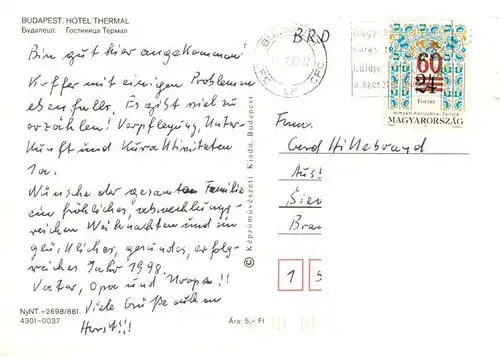 BUDAPEST. HOTEL THERMAL
Будапешт. Гостиница Термал
Bin gut hier angekommen!
Koffer mit einigen Problemen
ebenfalls. Es gibt viel zu
erzählen! Verpflegung, Unter-
kunft und Kuraktivitäten
1a.
Wünsche der gesamten Familie
ein fröhliches, abwechlungs-
reiches Weihnachten und ein
glückliches, gesundes, erfolg-
reiches Jahr 1998.
Vater, Opa und Uropa!!
Viele Grüße auch an
Horst!!!
NyNT.-2698/861.
4301-0037
Ára: 5,- Ft
© Képzőművészeti Kiadó, Budapest
BRD
BUDAPEST
CFC LP CFC
60
24
Forint
MAGYARORSZÁG
Gerd Hillebrand
1 5